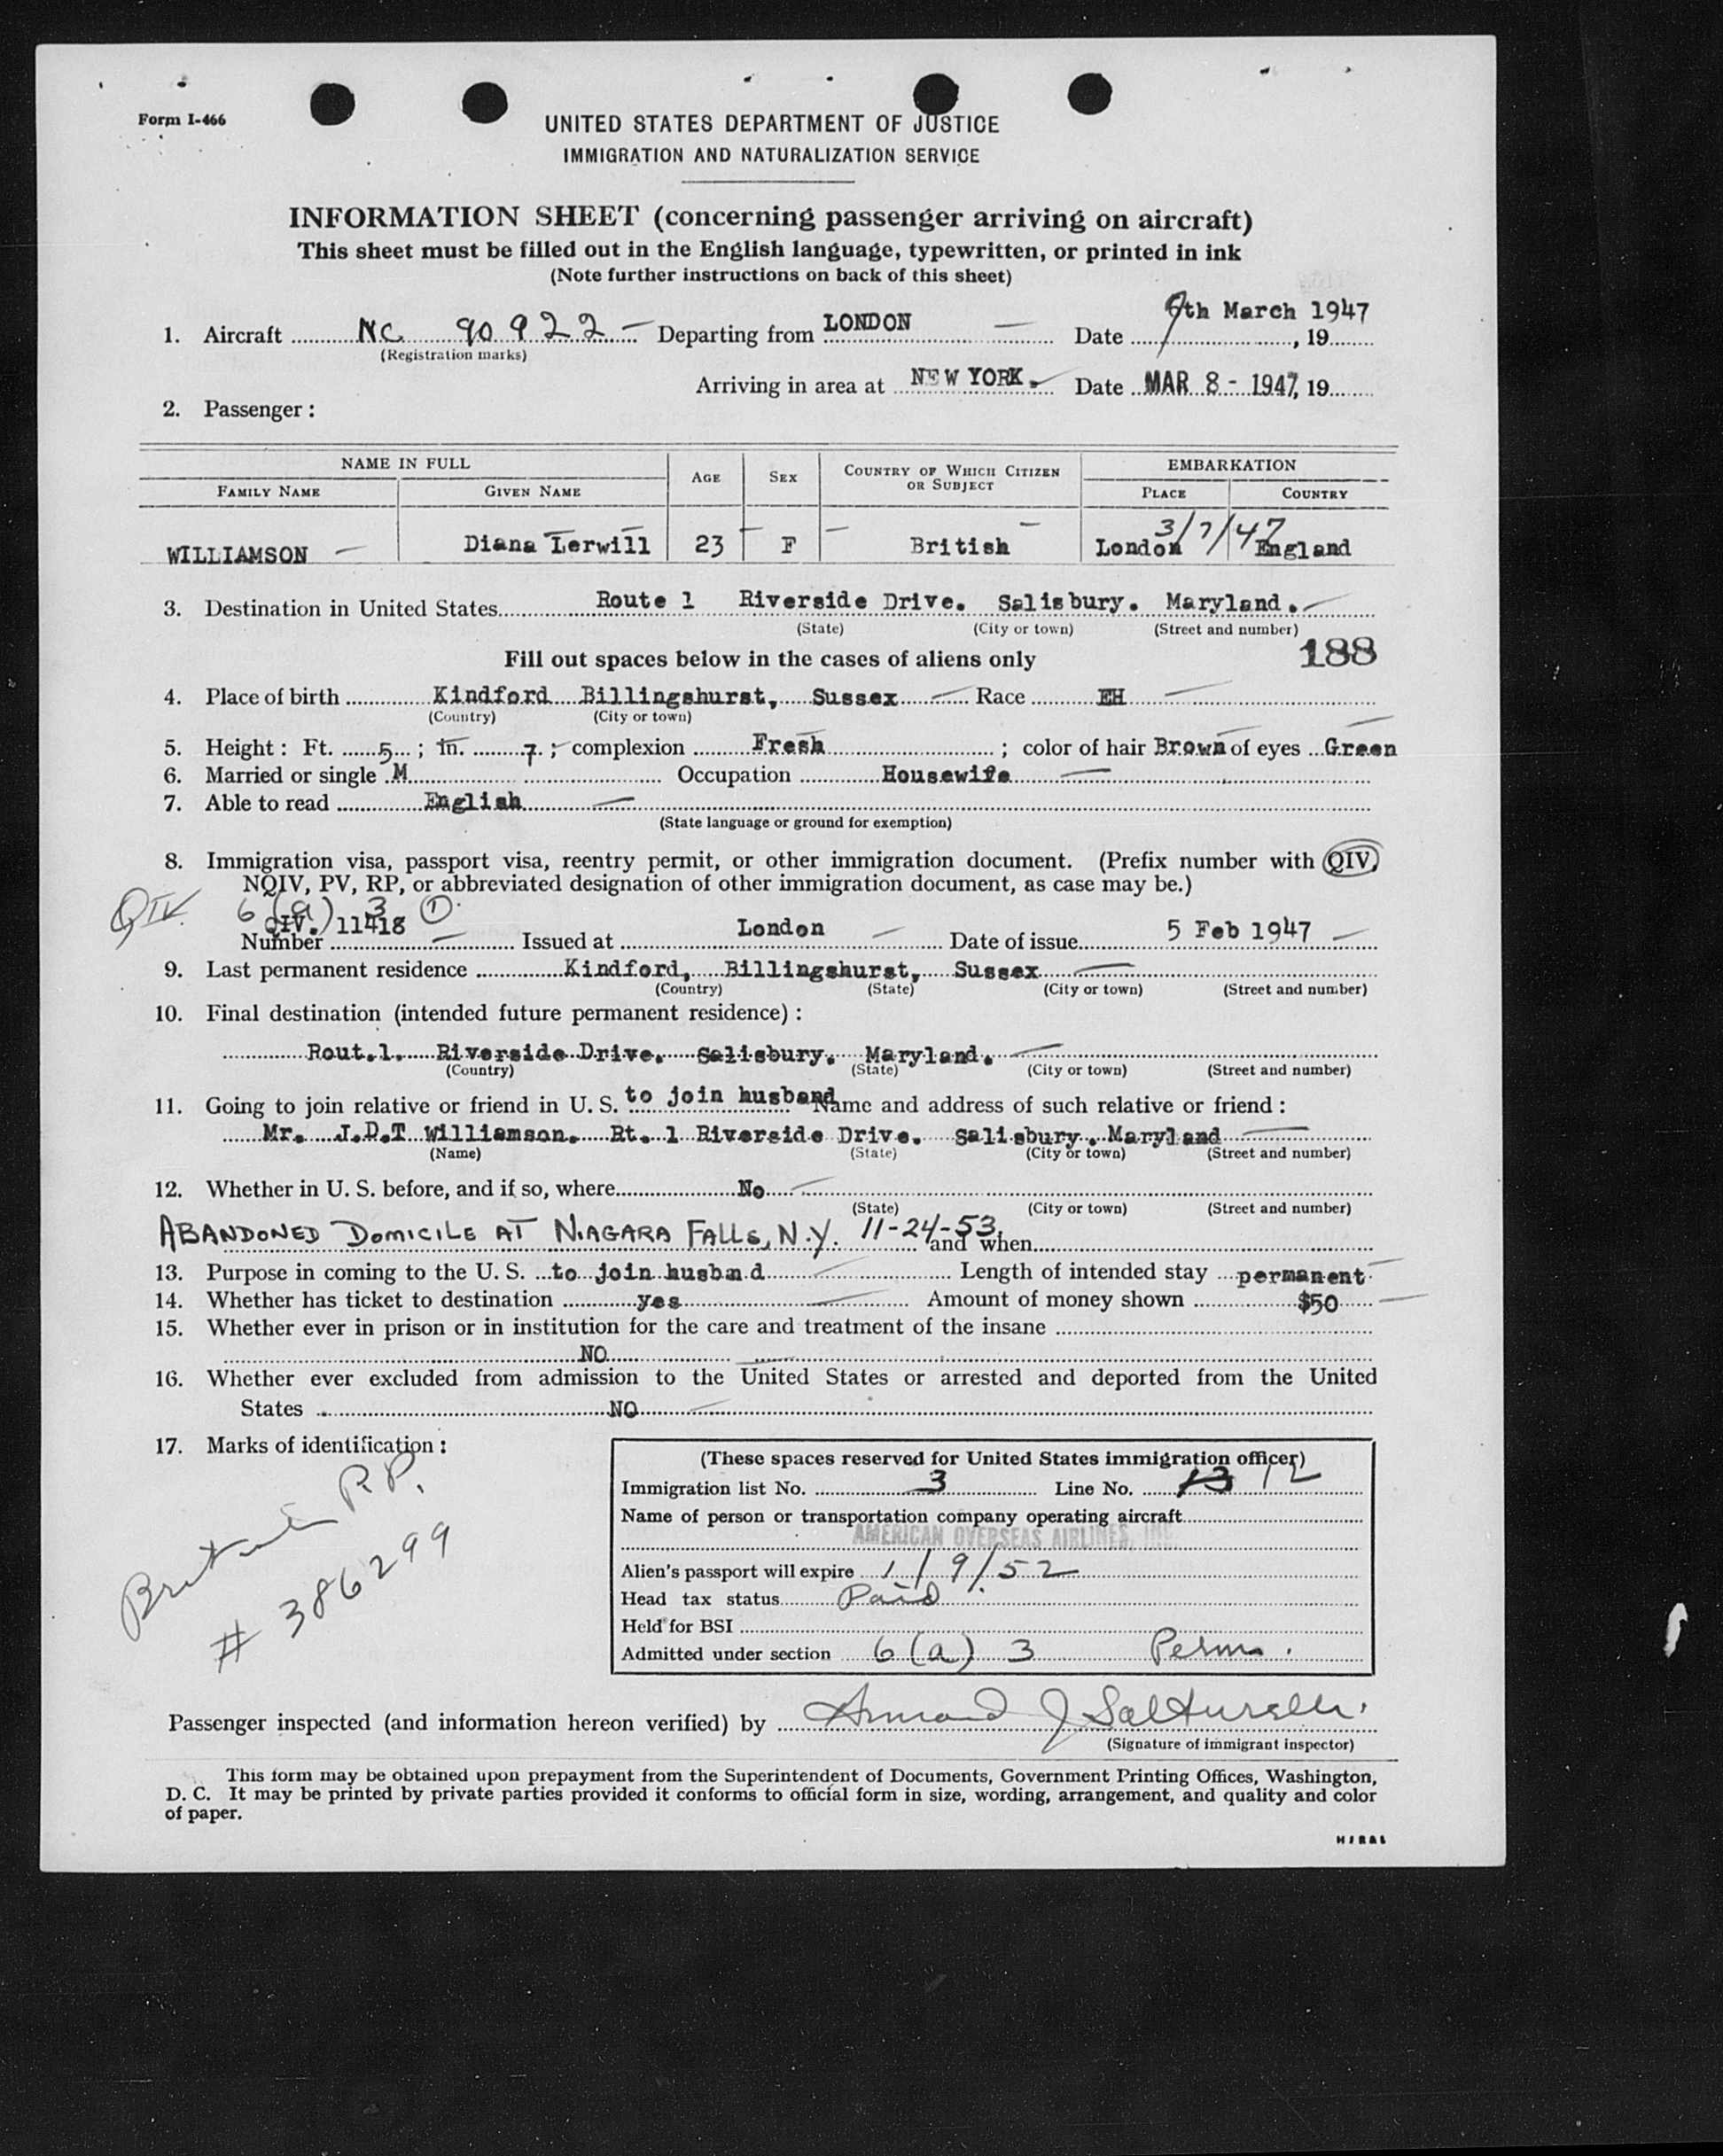 Form I-466
UNITED STATES DEPARTMENT OF JUSTICE
IMMIGRATION AND NATURALIZATION SERVICE
INFORMATION SHEET (concerning passenger arriving on aircraft)
This sheet must be filled out in the English language, typewritten, or printed in ink
(Note further instructions on back of this sheet)
1. Aircraft NC 90922 Departing from LONDON Date 7th March 1947, 19
(Registration marks)
Arriving in area at NEW YORK. Date MAR 8 - 1947, 19
2. Passenger:
NAME IN FULL AGE SEX COUNTRY OF WHICH CITIZEN OR SUBJECT EMBARKATION
FAMILY NAME GIVEN NAME PLACE COUNTRY
3/7/47
WILLIAMSON Diana Lerwill 23 F British London England
3. Destination in United States Route 1 Riverside Drive. Salisbury. Maryland.
(State) (City or town) (Street and number)
Fill out spaces below in the cases of aliens only 188
4. Place of birth Kindford Billingshurst, Sussex Race EH
(Country) (City or town)
5. Height: Ft. 5; In. 7; complexion Fresh; color of hair Brown of eyes Green
6. Married or single M Occupation Housewife
7. Able to read English
(State language or ground for exemption)
8. Immigration visa, passport visa, reentry permit, or other immigration document. (Prefix number with QIV,
NQIV, PV, RP, or abbreviated designation of other immigration document, as case may be.)
QIV. 6 (a) 3 1
Number QIV. 11418 Issued at London Date of issue 5 Feb 1947
9. Last permanent residence Kindford, Billingshurst, Sussex
(Country) (State) (City or town) (Street and number)
10. Final destination (intended future permanent residence):
Rout.1. Riverside Drive. Salisbury. Maryland.
(Country) (State) (City or town) (Street and number)
11. Going to join relative or friend in U. S. to join husband Name and address of such relative or friend:
Mr. J.D.T Williamson. Rt. 1 Riverside Drive. Salisbury. Maryland
(Name) (State) (City or town) (Street and number)
12. Whether in U. S. before, and if so, where No
(State) (City or town) (Street and number)
ABANDONED DOMICILE AT NIAGARA FALLS, N.Y. 11-24-53. and when
13. Purpose in coming to the U. S. to join husbnd Length of intended stay permanent
14. Whether has ticket to destination yes Amount of money shown $50
15. Whether ever in prison or in institution for the care and treatment of the insane
NO
16. Whether ever excluded from admission to the United States or arrested and deported from the United
States NO
17. Marks of identification:
British P.P.
# 386299
(These spaces reserved for United States immigration officer)
Immigration list No. 3 Line No. 13 12
Name of person or transportation company operating aircraft
AMERICAN OVERSEAS AIRLINES, INC.
Alien's passport will expire 1/9/52
Head tax status Paid
Held for BSI
Admitted under section 6(a) 3 Perm.
Passenger inspected (and information hereon verified) by Armand J Salturelli
(Signature of immigrant inspector)
This form may be obtained upon prepayment from the Superintendent of Documents, Government Printing Offices, Washington,
D. C. It may be printed by private parties provided it conforms to official form in size, wording, arrangement, and quality and color
of paper.